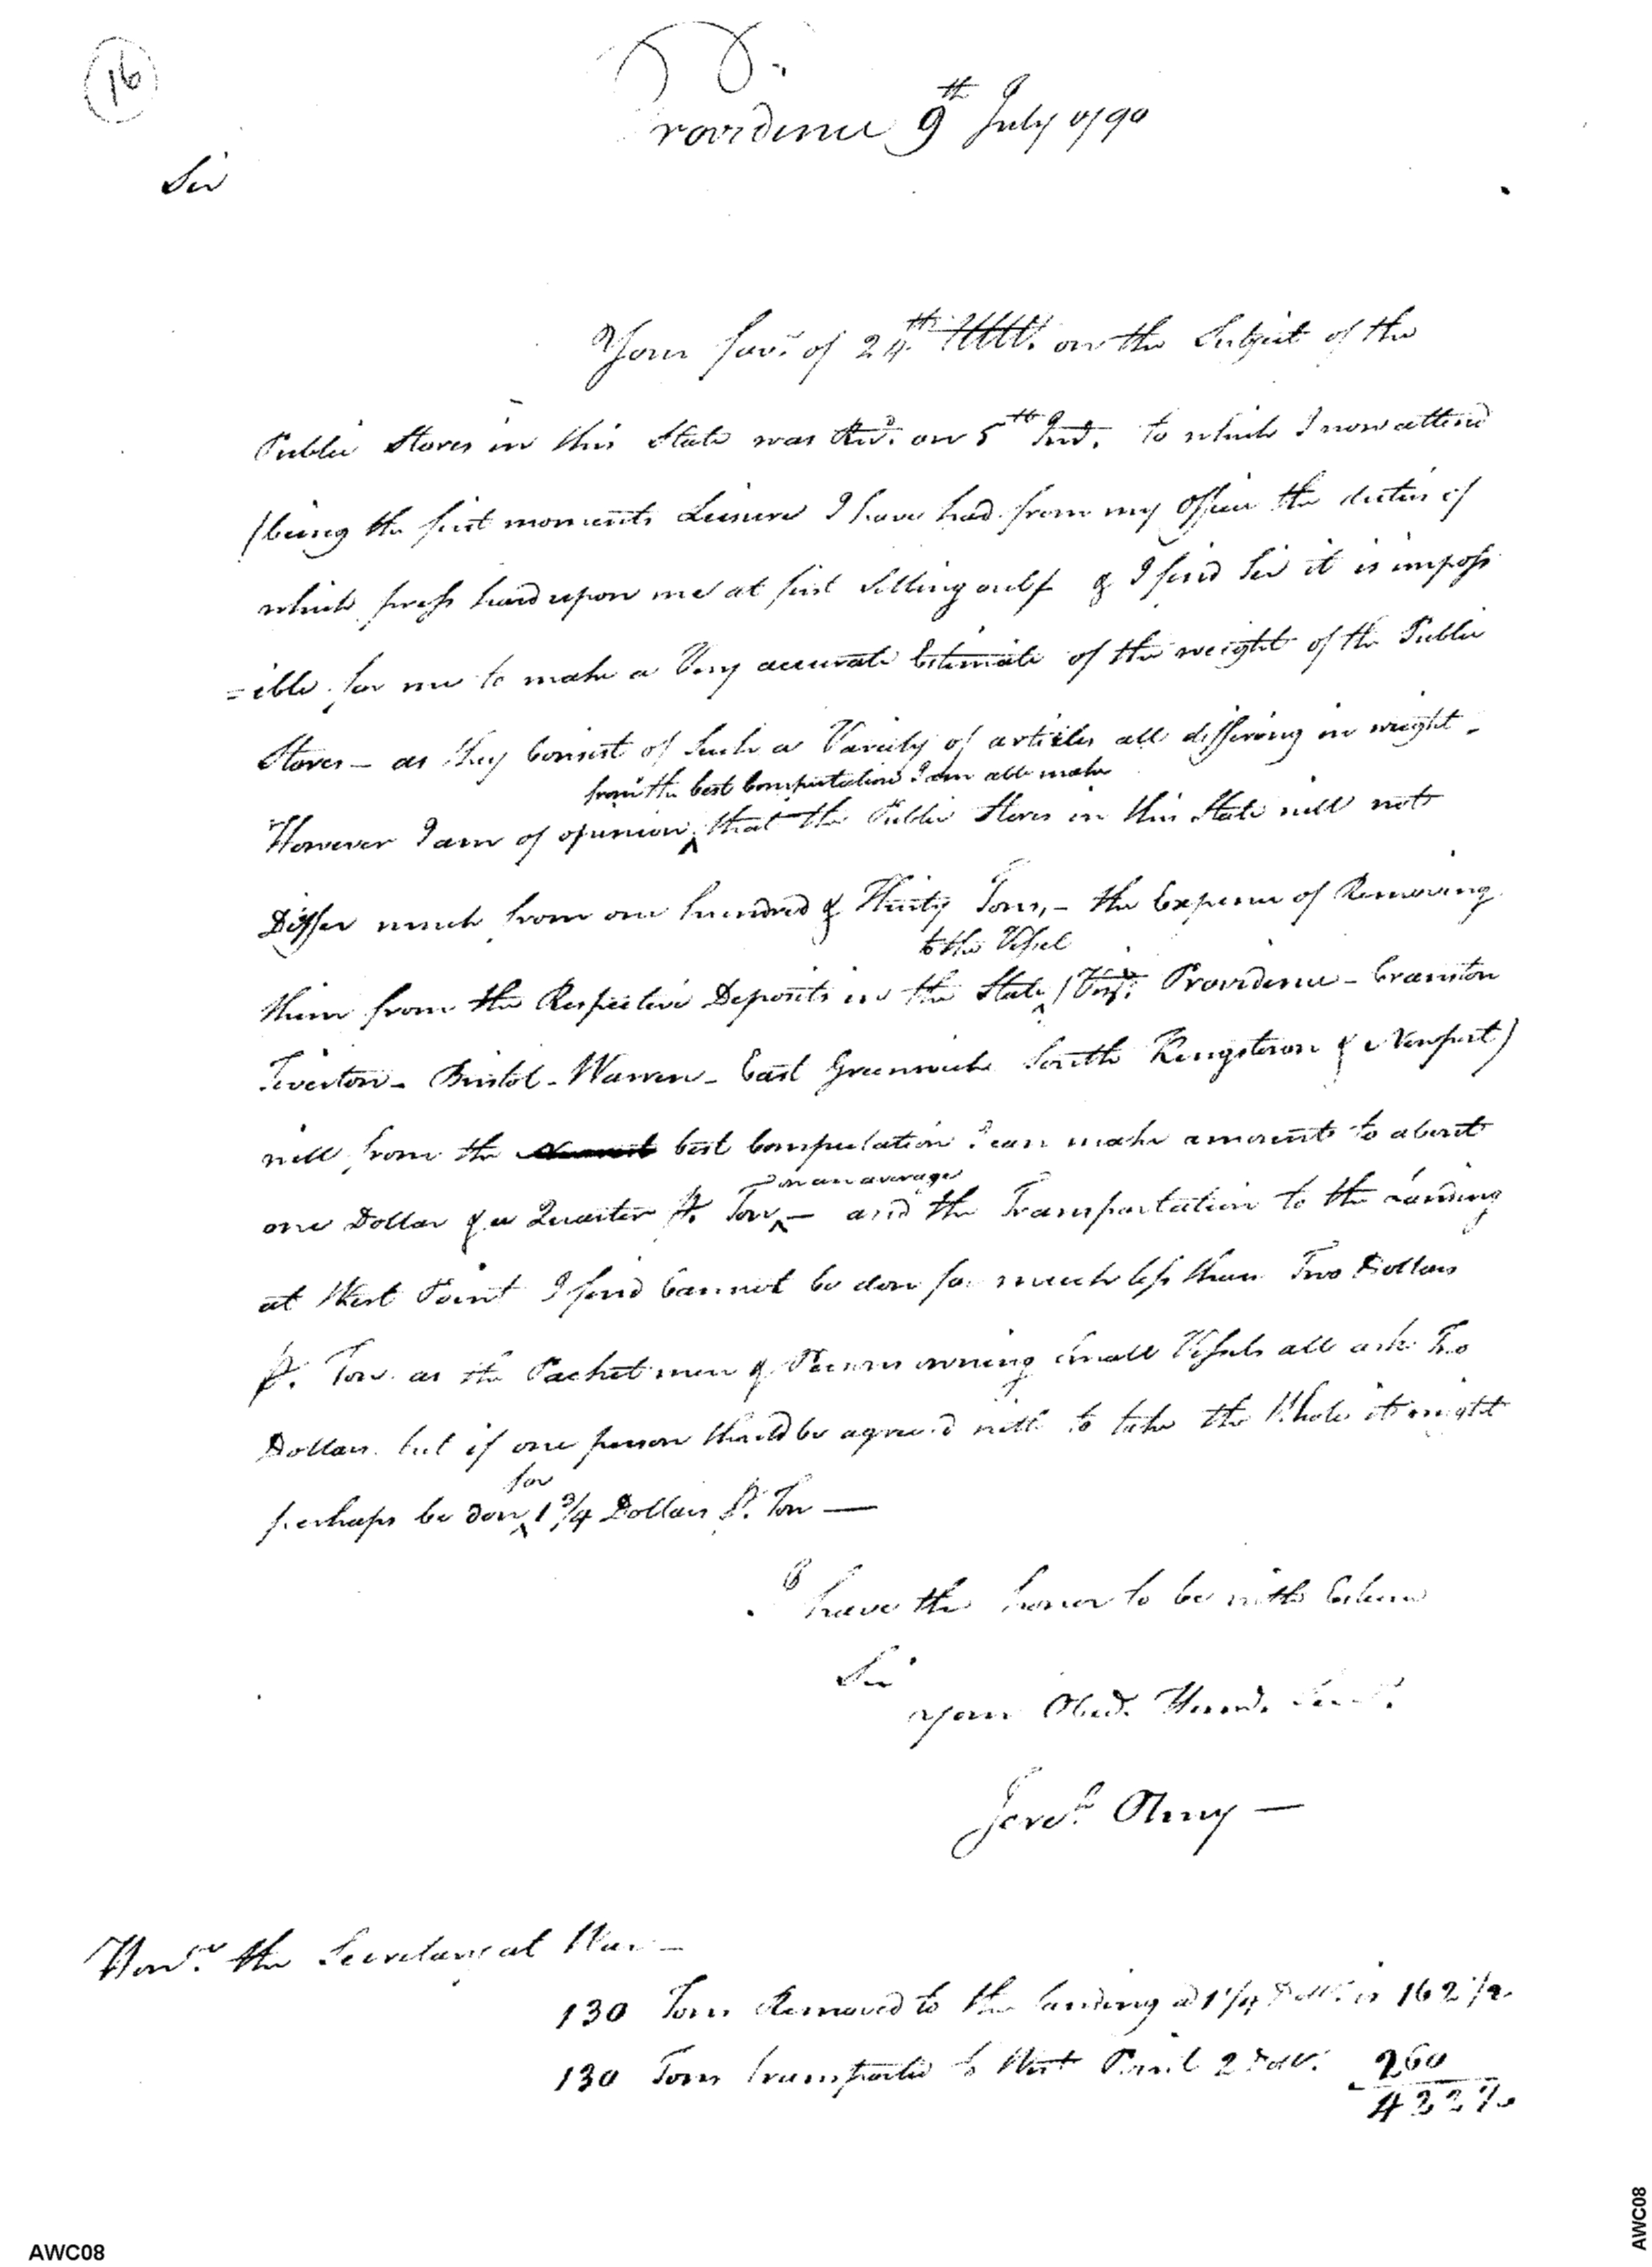 16
Providence 9th July 1790
Sir
Your favr. of 24th Ultl. on the Subject of the
Public Stores in this State was Recd. on 5th Inst. to which I now attend
(being the first moments Leisure I have had from my Office the duties of
which press hard upon me at first setting out) & I find Sir it is imposs
=ible for me to make a Very accurate Estimate of the weight of the Public
Stores - as they Consist of Such a Variety of articles all differing in weight -
from the best Computation I am able make
However I am of opinion ^ that the Public Stores in this State will not
Differ much from one hundred & Thirty Tons, - the Expence of Removing
to the Vessel
them from the Respective Deposits in the State ^ (Viz: Providence - Cranston
Tiverton - Bristol - Warren - East Greenwich South Kingstown & Newport)
will from the best Computation I can make amount to about
on an average
one Dollar & a Quarter P. Ton ^ - and the Transportation to the Landing
at West Point I find Cannot be don for much less than Two Dollars
P. Ton as the Packet men & Persons owning Small Vessels all ask Two
Dollars. but if one person should be agreed with to take the Whole it might
for
perhaps be don ^ 1 3/4 Dollars P. Ton —
I have the honor to be with Esteem
Sir
your Obed. Humb. Servt.
Jereh. Olney —
Honr. the Secretary at War -
130 Tons Removed to the landing @ 1 1/4 Dollr. is 162 1/2
130 Tons transported to West Point 2 Dollr. 260
422 1/2
AWC08
AWC08